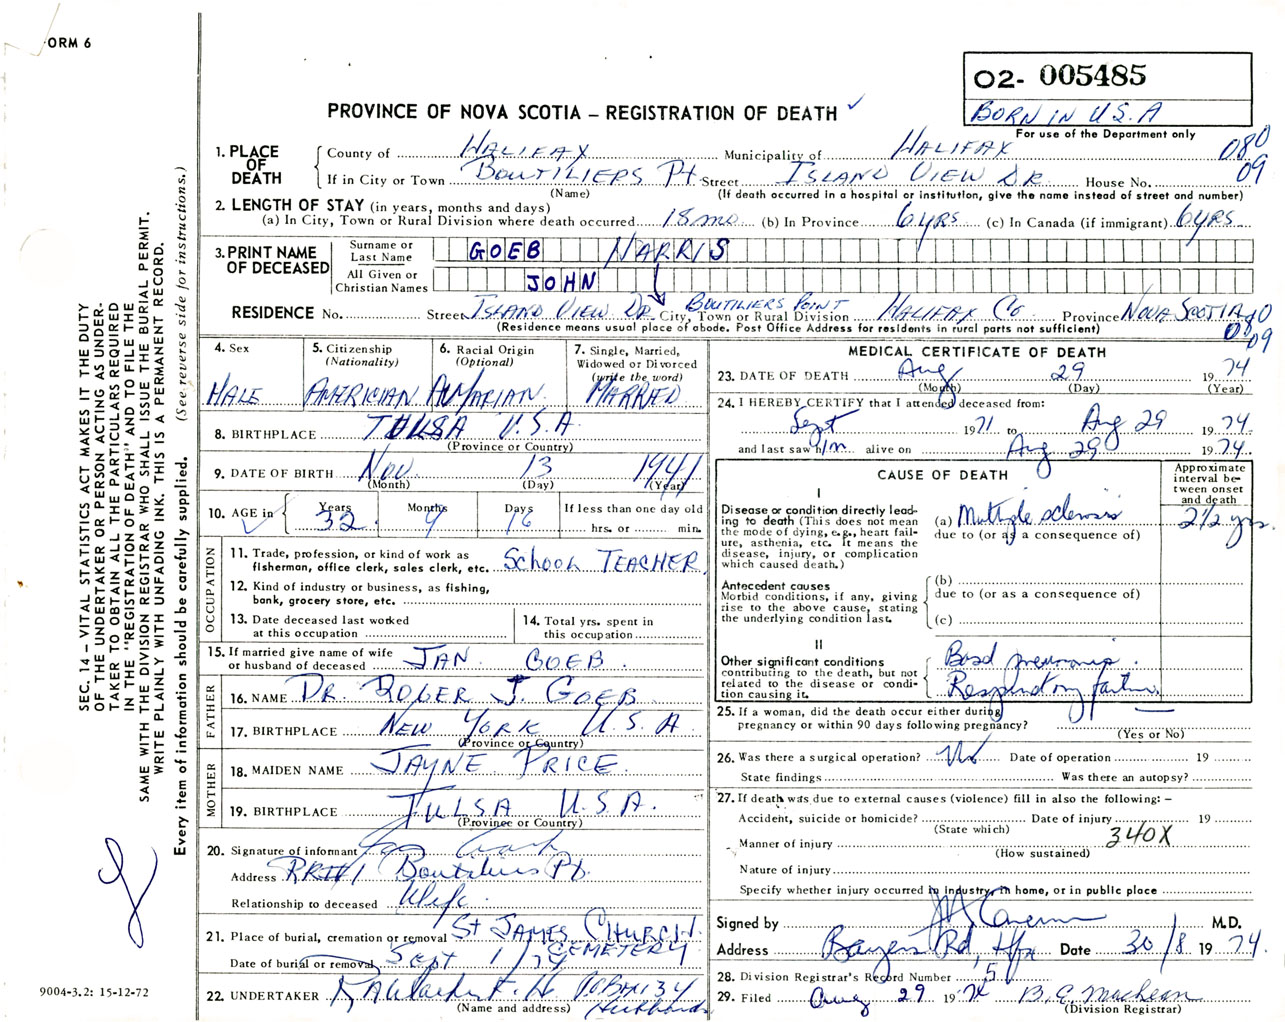 FORM 6
O2- 005485
BORN IN U.S.A
For use of the Department only
PROVINCE OF NOVA SCOTIA – REGISTRATION OF DEATH
1. PLACE OF DEATH
County of HALIFAX Municipality of HALIFAX 080
If in City or Town BOUTILIERS Pt. Street ISLAND VIEW DR House No. 09
(Name) (If death occurred in a hospital or institution, give the name instead of street and number)
2. LENGTH OF STAY (in years, months and days)
(a) In City, Town or Rural Division where death occurred 18 mo (b) In Province 6 yrs (c) In Canada (if immigrant) 6 yrs
3. PRINT NAME OF DECEASED
Surname or Last Name GOEB NARRIS
All Given or Christian Names JOHN
RESIDENCE No. Street ISLAND VIEW DR City, Town or Rural Division BOUTILIERS POINT HALIFAX Co Province NOVA SCOTIA
(Residence means usual place of abode. Post Office Address for residents in rural parts not sufficient) 0809
4. Sex
MALE
5. Citizenship (Nationality)
AMERICIAN
6. Racial Origin (Optional)
7. Single, Married, Widowed or Divorced (write the word)
MARRIED
8. BIRTHPLACE TULSA U.S.A.
(Province or Country)
9. DATE OF BIRTH Nov 13 1941
(Month) (Day) (Year)
10. AGE in Years 32 Months 9 Days 16 If less than one day old hrs. or min.
OCCUPATION
11. Trade, profession, or kind of work as fisherman, office clerk, sales clerk, etc. SCHOOL TEACHER
12. Kind of industry or business, as fishing, bank, grocery store, etc.
13. Date deceased last worked at this occupation
14. Total yrs. spent in this occupation
15. If married give name of wife or husband of deceased JAN GOEB
FATHER
16. NAME DR. ROGER J. GOEB
17. BIRTHPLACE NEW YORK U.S.A
(Province or Country)
MOTHER
18. MAIDEN NAME JAYNE PRICE
19. BIRTHPLACE TULSA U.S.A.
(Province or Country)
20. Signature of informant
Address RR#1 Boutiliers Pt.
Relationship to deceased Wife
21. Place of burial, cremation or removal ST JAMES CHURCH CEMETERY
Date of burial or removal SEPT 1/74
22. UNDERTAKER P.O. Box 134 Hubbards
(Name and address)
MEDICAL CERTIFICATE OF DEATH
23. DATE OF DEATH Aug 29 1974
(Month) (Day) (Year)
24. I HEREBY CERTIFY that I attended deceased from:
Sept 1971 to Aug 29 1974
and last saw him alive on Aug 29 1974
CAUSE OF DEATH
Approximate interval between onset and death
I
Disease or condition directly leading to death (This does not mean the mode of dying, e.g., heart failure, asthenia, etc. It means the disease, injury, or complication which caused death.)
(a) Multiple sclerosis 2½ yrs.
due to (or as a consequence of)
Antecedent causes
Morbid conditions, if any, giving rise to the above cause, stating the underlying condition last.
(b)
due to (or as a consequence of)
(c)
II
Other significant conditions contributing to the death, but not related to the disease or condition causing it.
pneumonia.
Respiratory failure.
25. If a woman, did the death occur either during pregnancy or within 90 days following pregnancy?
(Yes or No)
26. Was there a surgical operation? No Date of operation 19
State findings Was there an autopsy?
27. If death was due to external causes (violence) fill in also the following: –
Accident, suicide or homicide? Date of injury 19
(State which) 340X
Manner of injury
(How sustained)
Nature of injury
Specify whether injury occurred in industry, in home, or in public place
Signed by M.D.
Address Bayers Rd, Hfx Date 30/8 1974
28. Division Registrar's Record Number 5
29. Filed Aug 29 1974 B. E. MacLean
(Division Registrar)
SEC. 14 – VITAL STATISTICS ACT MAKES IT THE DUTY
OF THE UNDERTAKER OR PERSON ACTING AS UNDER-
TAKER TO OBTAIN ALL THE PARTICULARS REQUIRED
IN THE "REGISTRATION OF DEATH" AND TO FILE THE
SAME WITH THE DIVISION REGISTRAR WHO SHALL ISSUE THE BURIAL PERMIT.
WRITE PLAINLY WITH UNFADING INK. THIS IS A PERMANENT RECORD.
Every item of information should be carefully supplied. (See reverse side for instructions.)
9004-3.2: 15-12-72